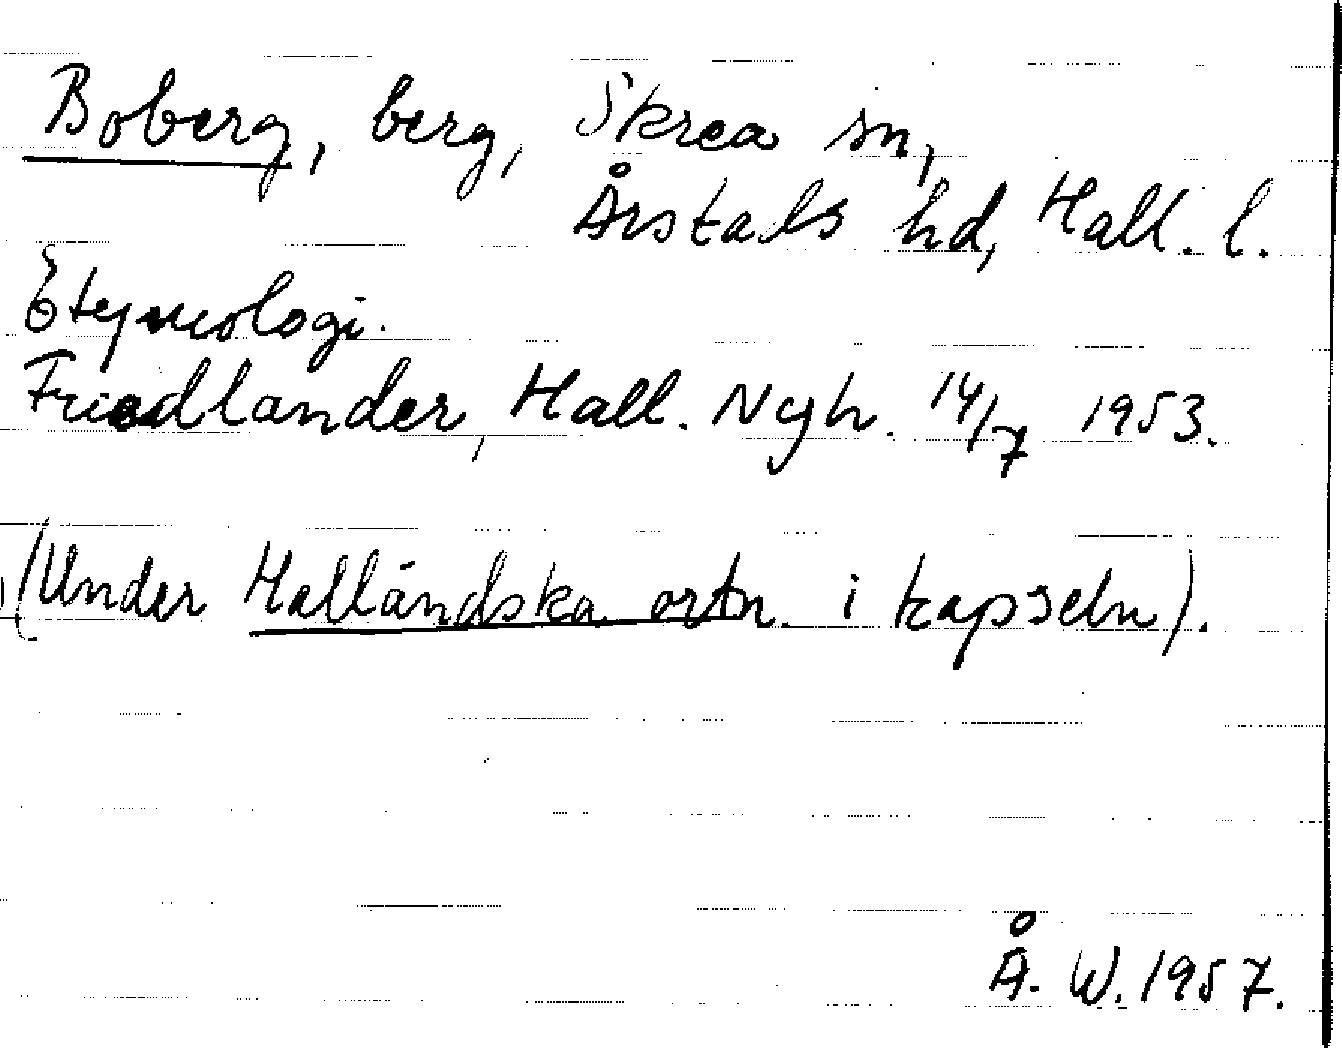 Boberg, berg, Skrea sn,
Årstads hd, Hall. l.
Etymologi.
Friedlander, Hall. Nyh. 14/7 1953.
(Under Halländska ortn. i kapseln).
Å. W. 1957.